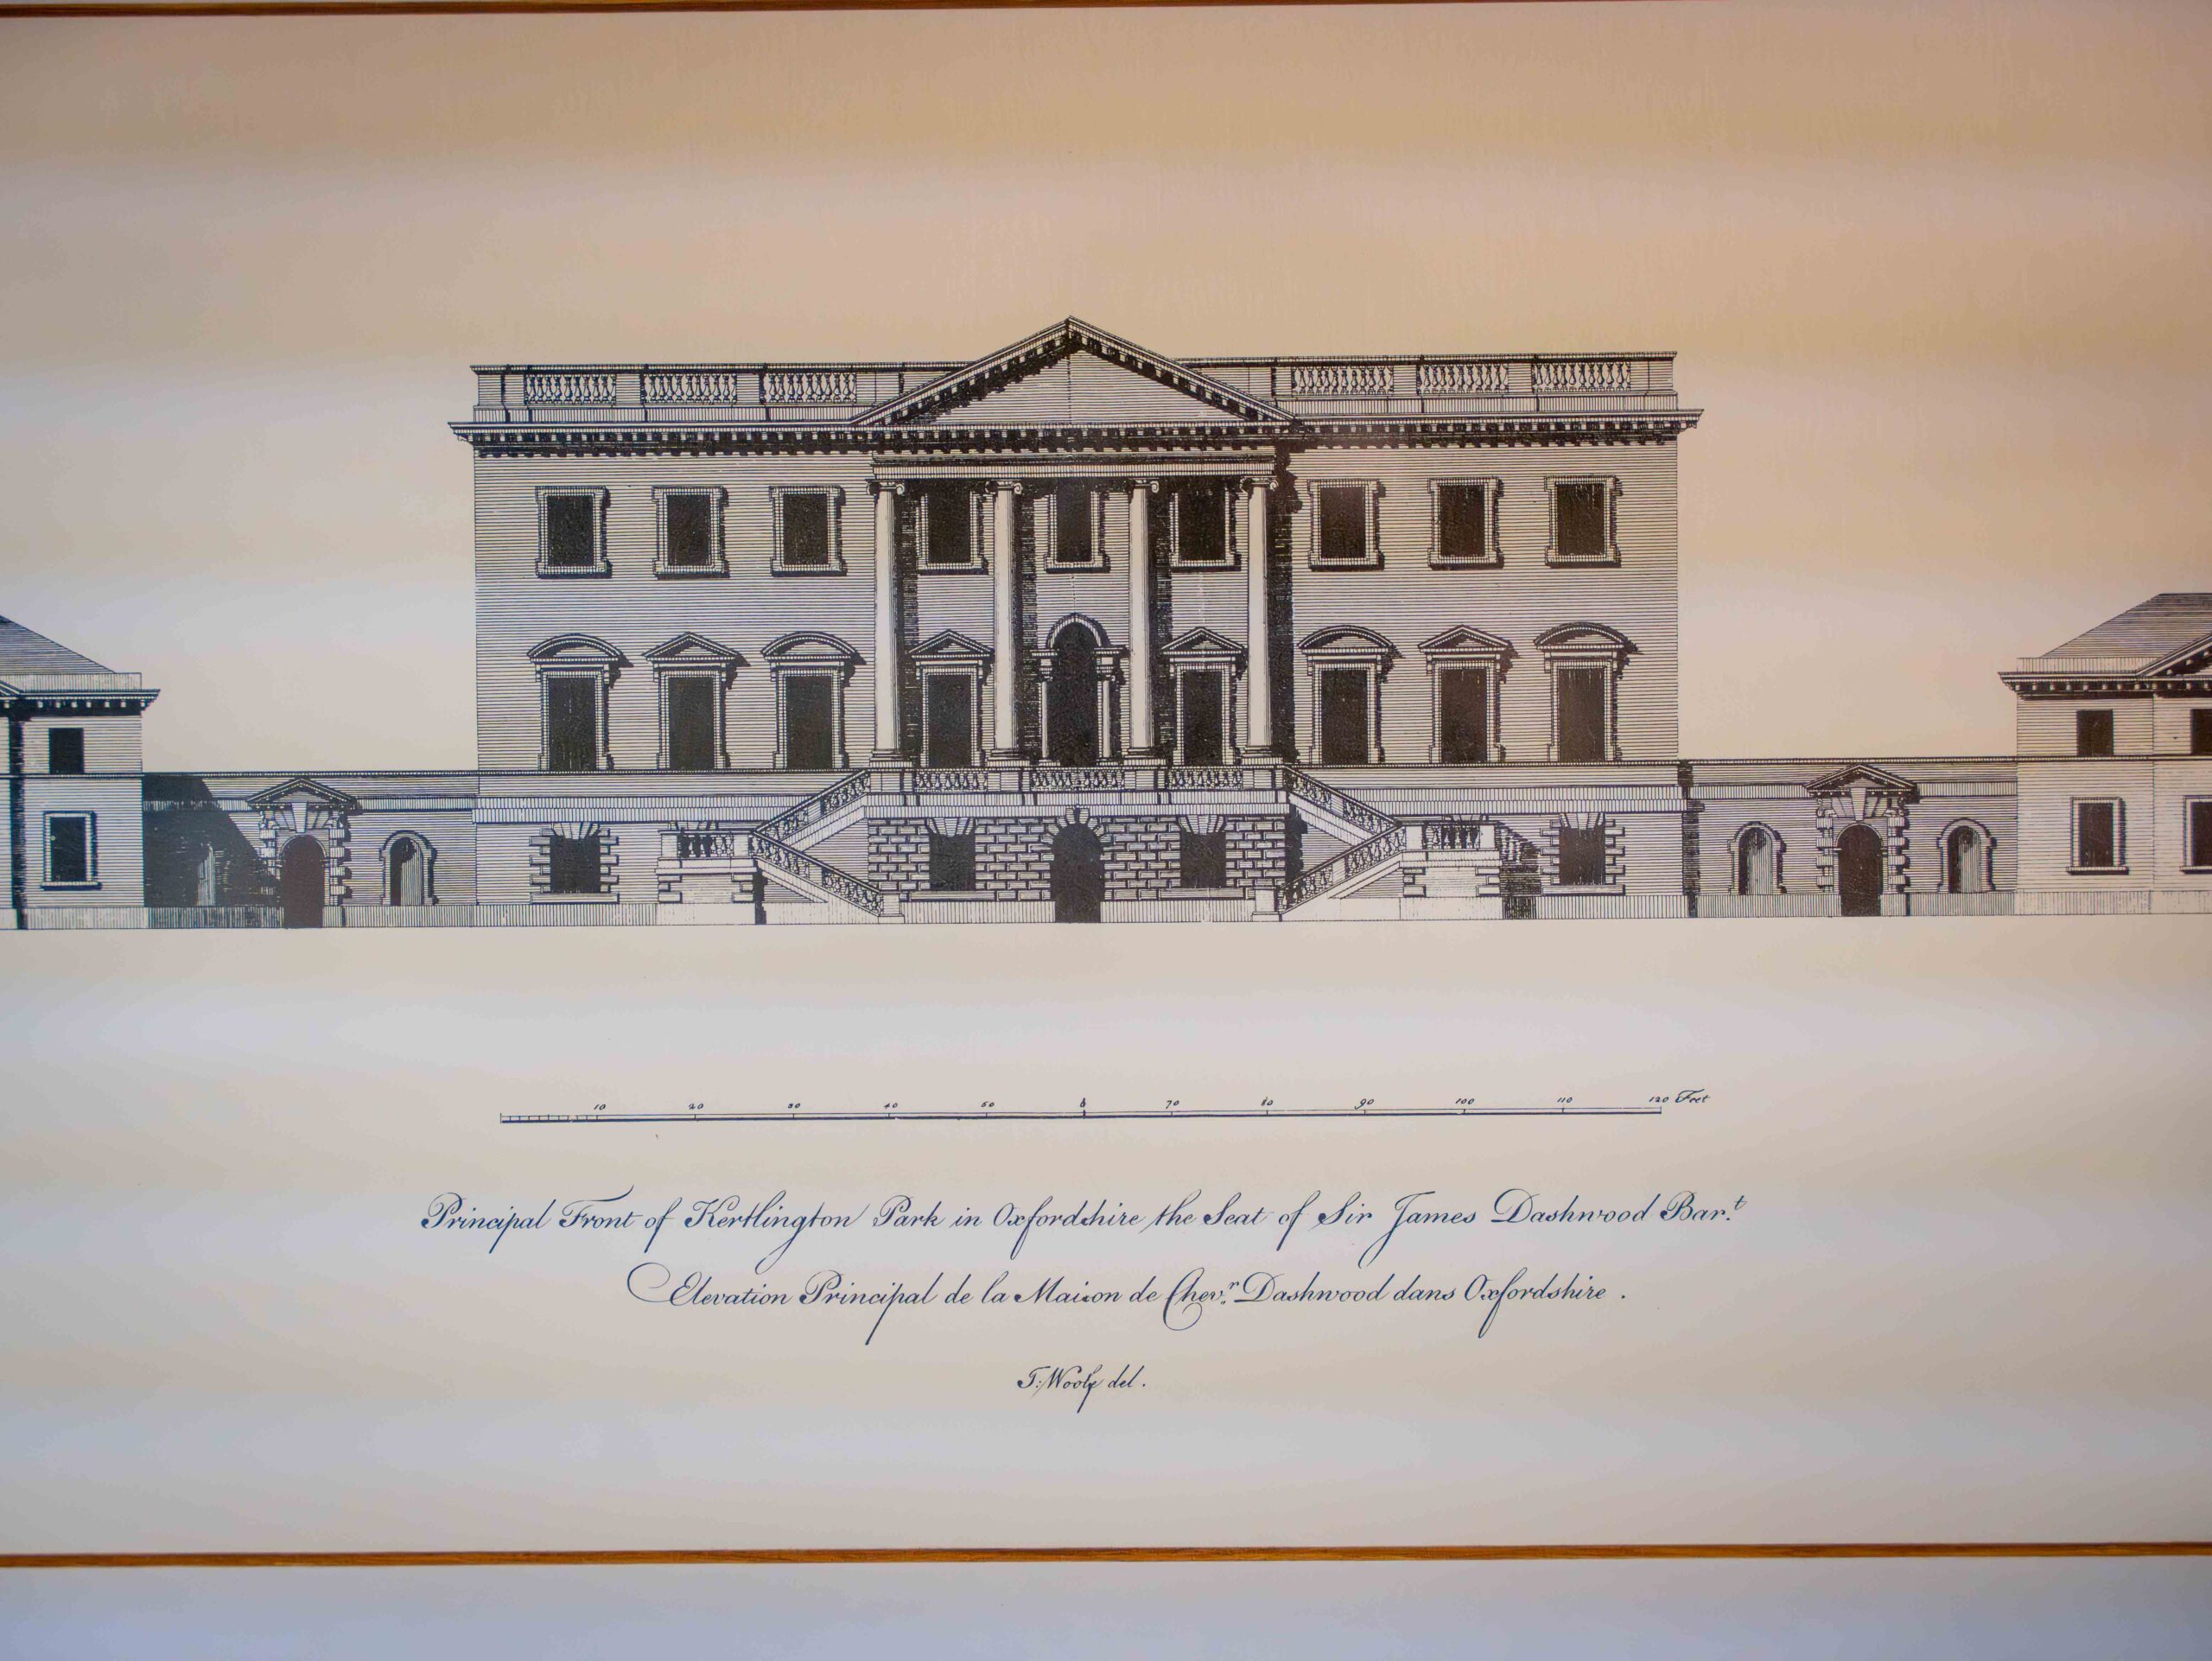 10 20 30 40 50 6 70 80 90 100 110 120 Feet
Principal Front of Kertlington Park in Oxfordshire the Seat of Sir James Dashwood Bar.t
Elevation Principal de la Maison de Chev.r Dashwood dans Oxfordshire .
T: Woolf del .